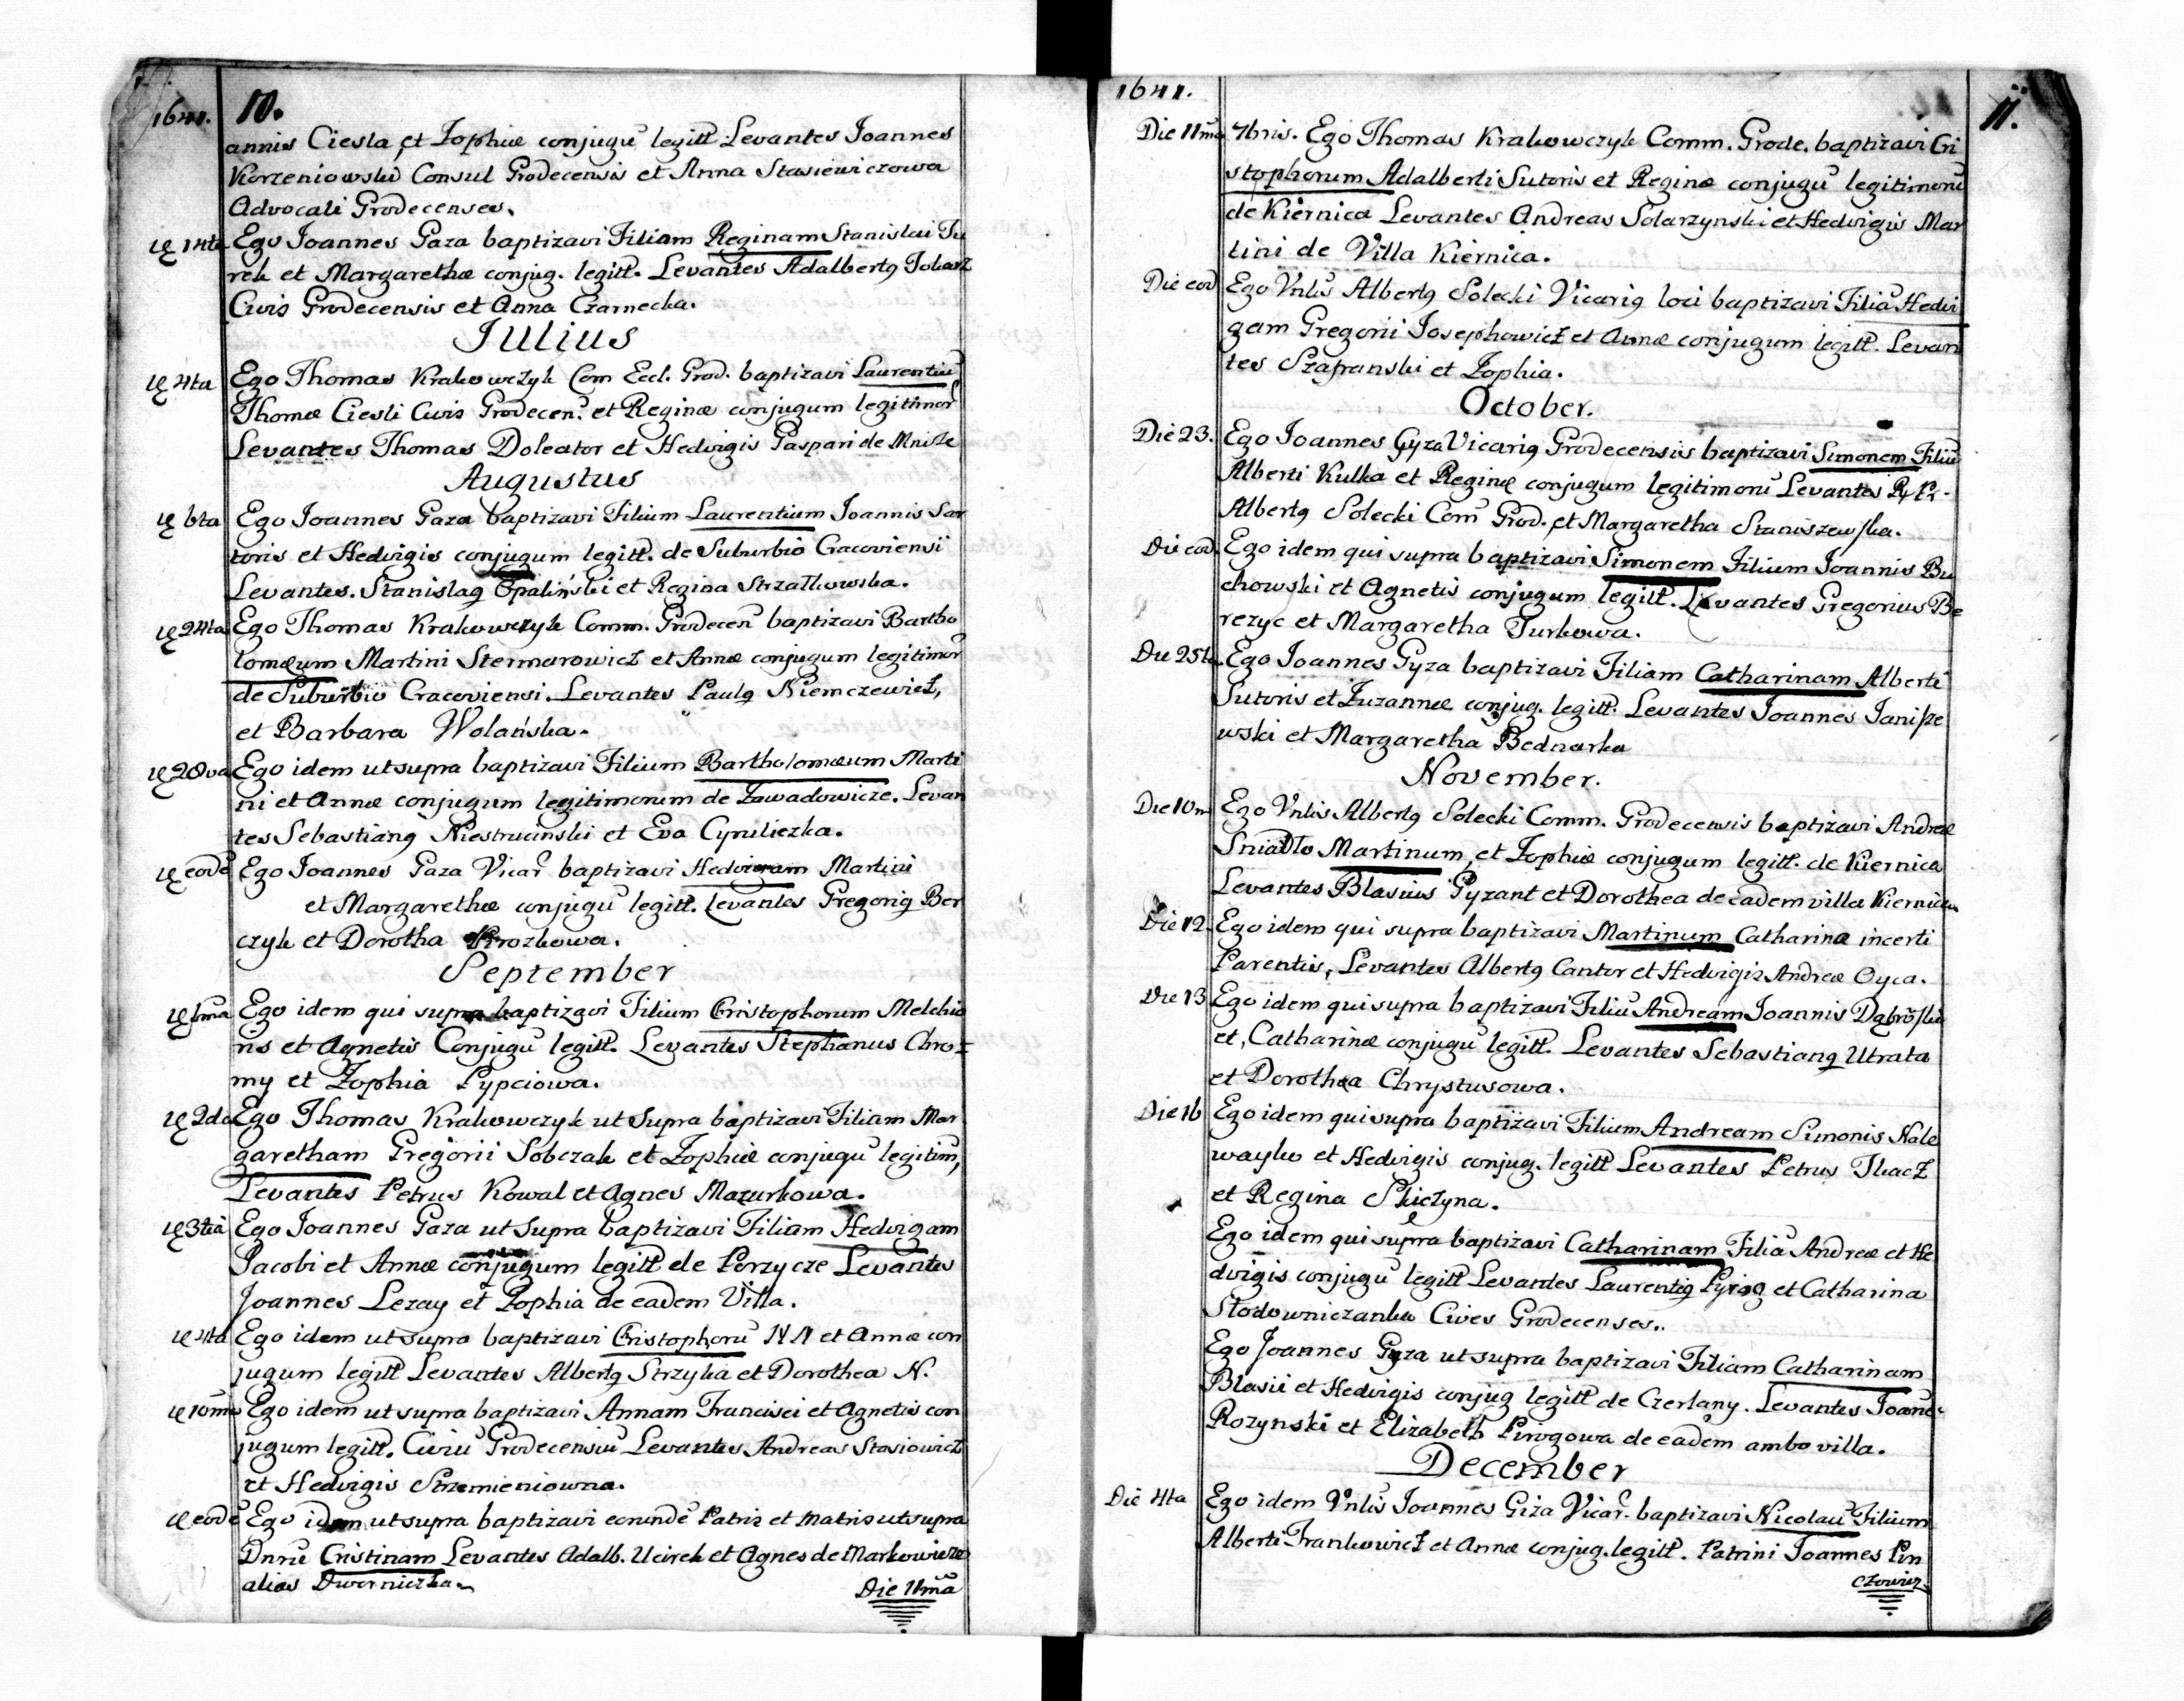 1641. 10.
annis Ciesla et Zophiæ conjugū legitt. Levantes Joannes
Korzeniowski Consul Grodecensis et Anna Stasiewiczowa
Advocati Grodecenses.
14ta Ego Joannes Gaza baptizavi Filiam Reginam Stanislai Tu
rek et Margarethæ conjug. legitt. Levantes Adalbertg
Civis Grodecensis et Anna Czarnecka.
Julius
4ta Ego Thomas Krakowczyk Com Eccl. Grod. baptizavi Laurentiū
Thomæ Ciesli Civis Grodecen. et Reginæ conjugum legitimor
Levantes Thomas Doleator et Hedvigis Gaspari de Mnisze
Augustus
6ta Ego Joannes Gaza baptizavi Filium Laurentium Joannis Sar
toris et Hedvigis conjugum legitt. de Suburbio Cracoviensi
Levantes. Stanislag Opaliński et Regina Strzałkowska.
24ta Ego Thomas Krakowczyk Comm. Grodecen baptizavi Bartho
lomæum Martini Stermarowicz et Annæ conjugum legitimor
de Suburbio Cracoviensi. Levantes Paulg Niemczewicz,
et Barbara Wolańska.
28va Ego idem ut supra baptizavi Filium Bartholomæum Marti
ni et Annæ conjugum legitimorum de Zawadowicze. Levan
tes Sebastiang Niestrucinski et Eva Cyruliczka.
eodē Ego Joannes Gaza Vicar baptizavi Hedvigam Martini
et Margarethæ conjugū legitt. Levantes Gregorig Ber
czyk et Dorotha Mrozkowa.
September
1ma Ego idem qui supra baptizavi Filium Cristophorum Melchio
ris et Agnetis Conjugū legitt. Levantes Stephanus Chro
my et Zophia Pypciowa.
2da Ego Thomas Krakowczyk ut supra baptizavi Filiam Mar
garetham Gregorii Sobczak et Zophiæ conjugū legitim,
Levantes Petrus Kowal et Agnes Mazurkowa.
3tia Ego Joannes Gaza ut supra baptizavi Filiam Hedvigam
Jacobi et Annæ conjugum legitt de Porzycze Levantes
Joannes Lezay et Zophia de eadem Villa.
4ta Ego idem ut supra baptizavi Cristophorū NN et Annæ con
jugum legitt Levantes Albertg Strzyka et Dorothea N.
10ma Ego idem ut supra baptizavi Annam Francisci et Agnetis con
jugum legitt. Civiū Grodecensiū Levantes Andreas Stasiowicz
et Hedvigis Strzemieniowna.
eodē Ego idem ut supra baptizavi eorundē Patris et Matris ut supra
Cristinam Levantes Adalb. Ucirek et Agnes de Markowicze
alias Dworniczka.
Die 11mā
1641. 11.
Die 11ma 7bris. Ego Thomas Krakowczyk Comm. Grode. baptizavi Cri
stophorum Adalberti Sutoris et Reginæ conjugū legitimorū
de Kiernica Levantes Andreas Solarzynski et Hedvigis Mar
tini de Villa Kiernica.
Die eod Ego Vnlis Albertg Solecki Vicarig loci baptizavi Filiā Hedvi
gam Gregorii Josephowicz et Annæ conjugum legitt. Levan
tes Szafranski et Zophia.
October.
Die 23. Ego Joannes Gyza Vicarig Grodecensis baptizavi Simonem Filiū
Alberti Kulka et Reginæ conjugum legitimorū Levantes
Albertg Solecki Com Grod. et Margaretha Staniszewska.
Die eod. Ego idem qui supra baptizavi Simonem Filium Joannis Bu
chowski et Agnetis conjugum legitt. Levantes Gregorius Be
rezyc et Margaretha Turkowa.
Die 25ta Ego Joannes Gyza baptizavi Filiam Catharinam Alberti
Sutoris et Zuzannæ conjug. legitt. Levantes Joannes Janisze
wski et Margaretha Bednarka
November.
Die 10m Ego Vnlis Albertg Solecki Comm. Grodecensis baptizavi Andreæ
Sniadlo Martinum, et Zophiæ conjugum legitt. de Kiernica
Levantes Blasius Gyzant et Dorothea de eadem villa Kiernica
Die 12. Ego idem qui supra baptizavi Martinum Catharinæ incerti
Parentis, Levantes Albertg Cantor et Hedvigis Andreæ Oyca.
Die 13 Ego idem qui supra baptizavi Filiū Andream Joannis Dąbrowski
et Catharinæ conjugū legitt. Levantes Sebastiang Utrata
et Dorothea Chrystusowa.
Die 16 Ego idem qui supra baptizavi Filium Andream Simonis Nale
wayko et Hedvigis conjug. legitt Levantes Petrus Tkacz
et Regina
Ego idem qui supra baptizavi Catharinam Filiā Andreæ et He
dvigis conjugū legitt Levantes Laurentig Pyrog et Catharina
Słodowniczanka Cives Grodecenses.
Ego Joannes Gyza ut supra baptizavi Filiam Catharinam
Blasii et Hedvigis conjug legitt de Czerlany. Levantes Joann.
Rozynski et Elizabeth Pirogowa de eadem ambo villa.
December
Die 4ta Ego idem Vnlis Joannes Giza Vicar. baptizavi Nicolaū Filium
Alberti Frankowicz et Annæ conjug. legitt. Patrini Joannes Pin
czowicz